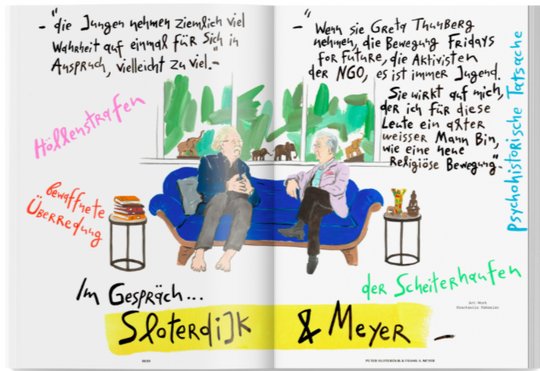 -"die Jungen nehmen ziemlich viel
Wahrheit auf einmal für sich in
Anspruch, vielleicht zu viel."-
-"Wenn sie Greta Thunberg
nehmen, die Bewegung Fridays
for Future, die Aktivisten
der NGO, es ist immer Jugend.
Sie wirkt auf mich,
der ich für diese
Leute ein alter
weisser Mann Bin,
wie eine neue
Religiöse Bewegung".
Psychohistorische Tatsache
Höllenstrafen
Bewaffnete
Überredung
der Scheiterhaufen
Im Gespräch...
Sloterdijk & Meyer -
PETER SLOTERDIJK & FRANK A. MEYER